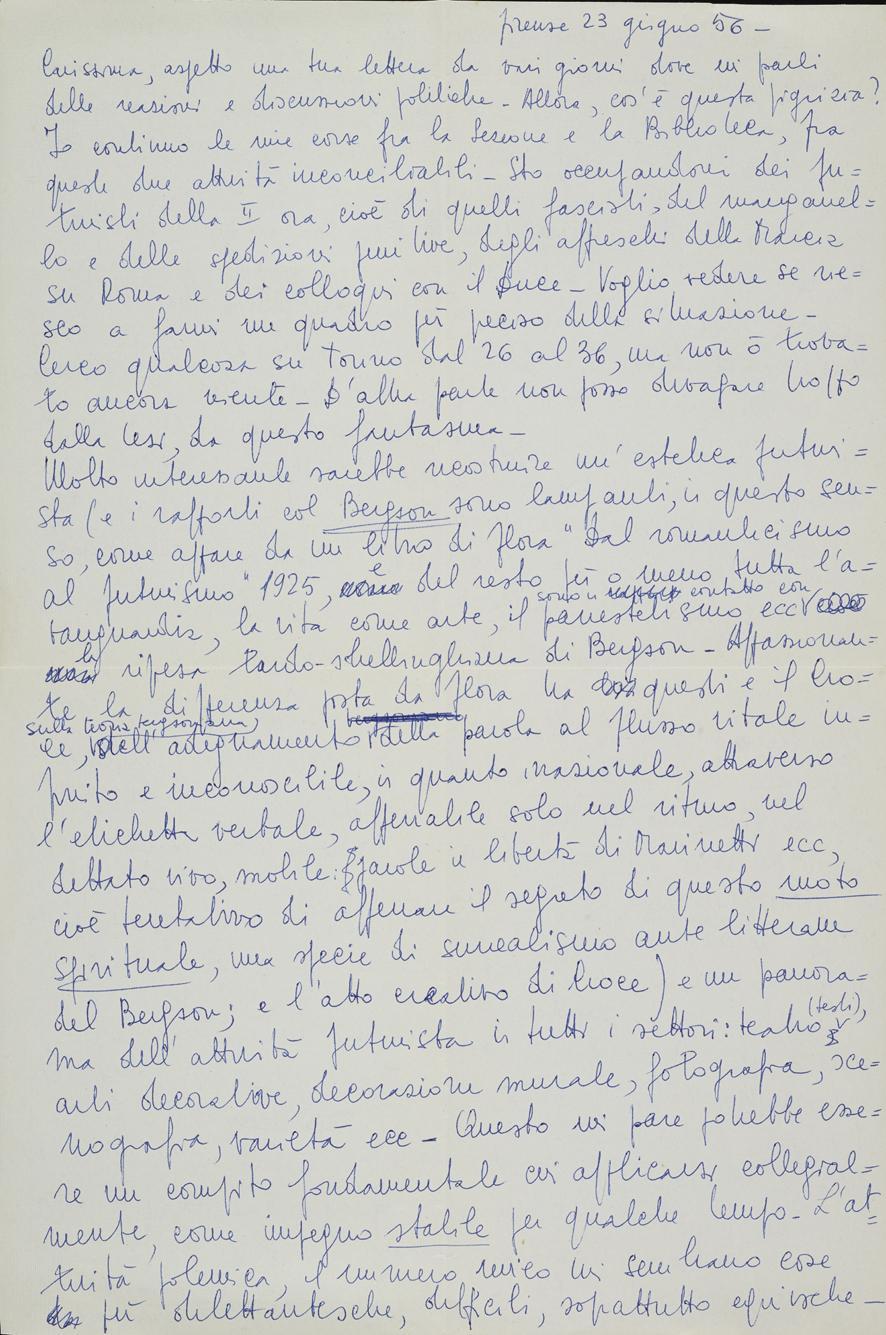 Firenze 23 giugno 56 -
Carissima, aspetto una tua lettera da vari giorni dove mi parli
delle reazioni e discussioni politiche - Allora, cos'è questa pigrizia?
Io continuo le mie corse fra la Sezione e la Biblioteca, fra
queste due attività inconciliabili - Sto occupandomi dei fu=
turisti della II ora, cioè di quelli fascisti, del manganel=
lo e delle spedizioni punitive, degli affreschi della Marcia
su Roma e dei colloqui con il Duce - Voglio vedere se rie=
sco a farmi un quadro più preciso della situazione -
Cerco qualcosa su Torino dal 26 al 36, ma non ò trova=
to ancora niente - D'altra parte non posso divagare troppo
dalla tesi, da questo fantasma -
Molto interessante sarebbe ricostruire un'estetica futuri=
sta (e i rapporti col Bergson sono lampanti, in questo sen=
so, come appare da un libro di Flora "Dal romanticismo
al futurismo" 1925, e del resto più o meno tutta l'a=
vanguardia, la vita come arte, il panestetismo ecc sono in contatto con
la ripresa tardo-schellinghiana di Bergson - Appassionan=
te la differenza posta da Flora tra questi e il Cro=
ce, sulla teoria bergsoniana, dell'adeguamento della parola al flusso vitale in=
finito e inconoscibile, in quanto irrazionale, attraverso
l'etichetta verbale, afferrabile solo nel ritmo, nel
dettato vivo, mobile: parole in libertà di Marinetti ecc,
cioè tentativo di afferrare il segreto di questo moto
spirituale, una specie di surrealismo ante litteram
del Bergson; e l'atto creativo di Croce) e un panora=
ma dell'attività futurista in tutti i settori: teatro (testi),
arti decorative, decorazione murale, fotografia, sce=
nografia, varietà ecc - Questo mi pare potrebbe esse=
re un compito fondamentale cui applicarsi collegial=
mente, come impegno stabile per qualche tempo - L'at=
tività polemica, il numero unico mi sembrano cose
più dilettantesche, difficili, soprattutto equivoche -